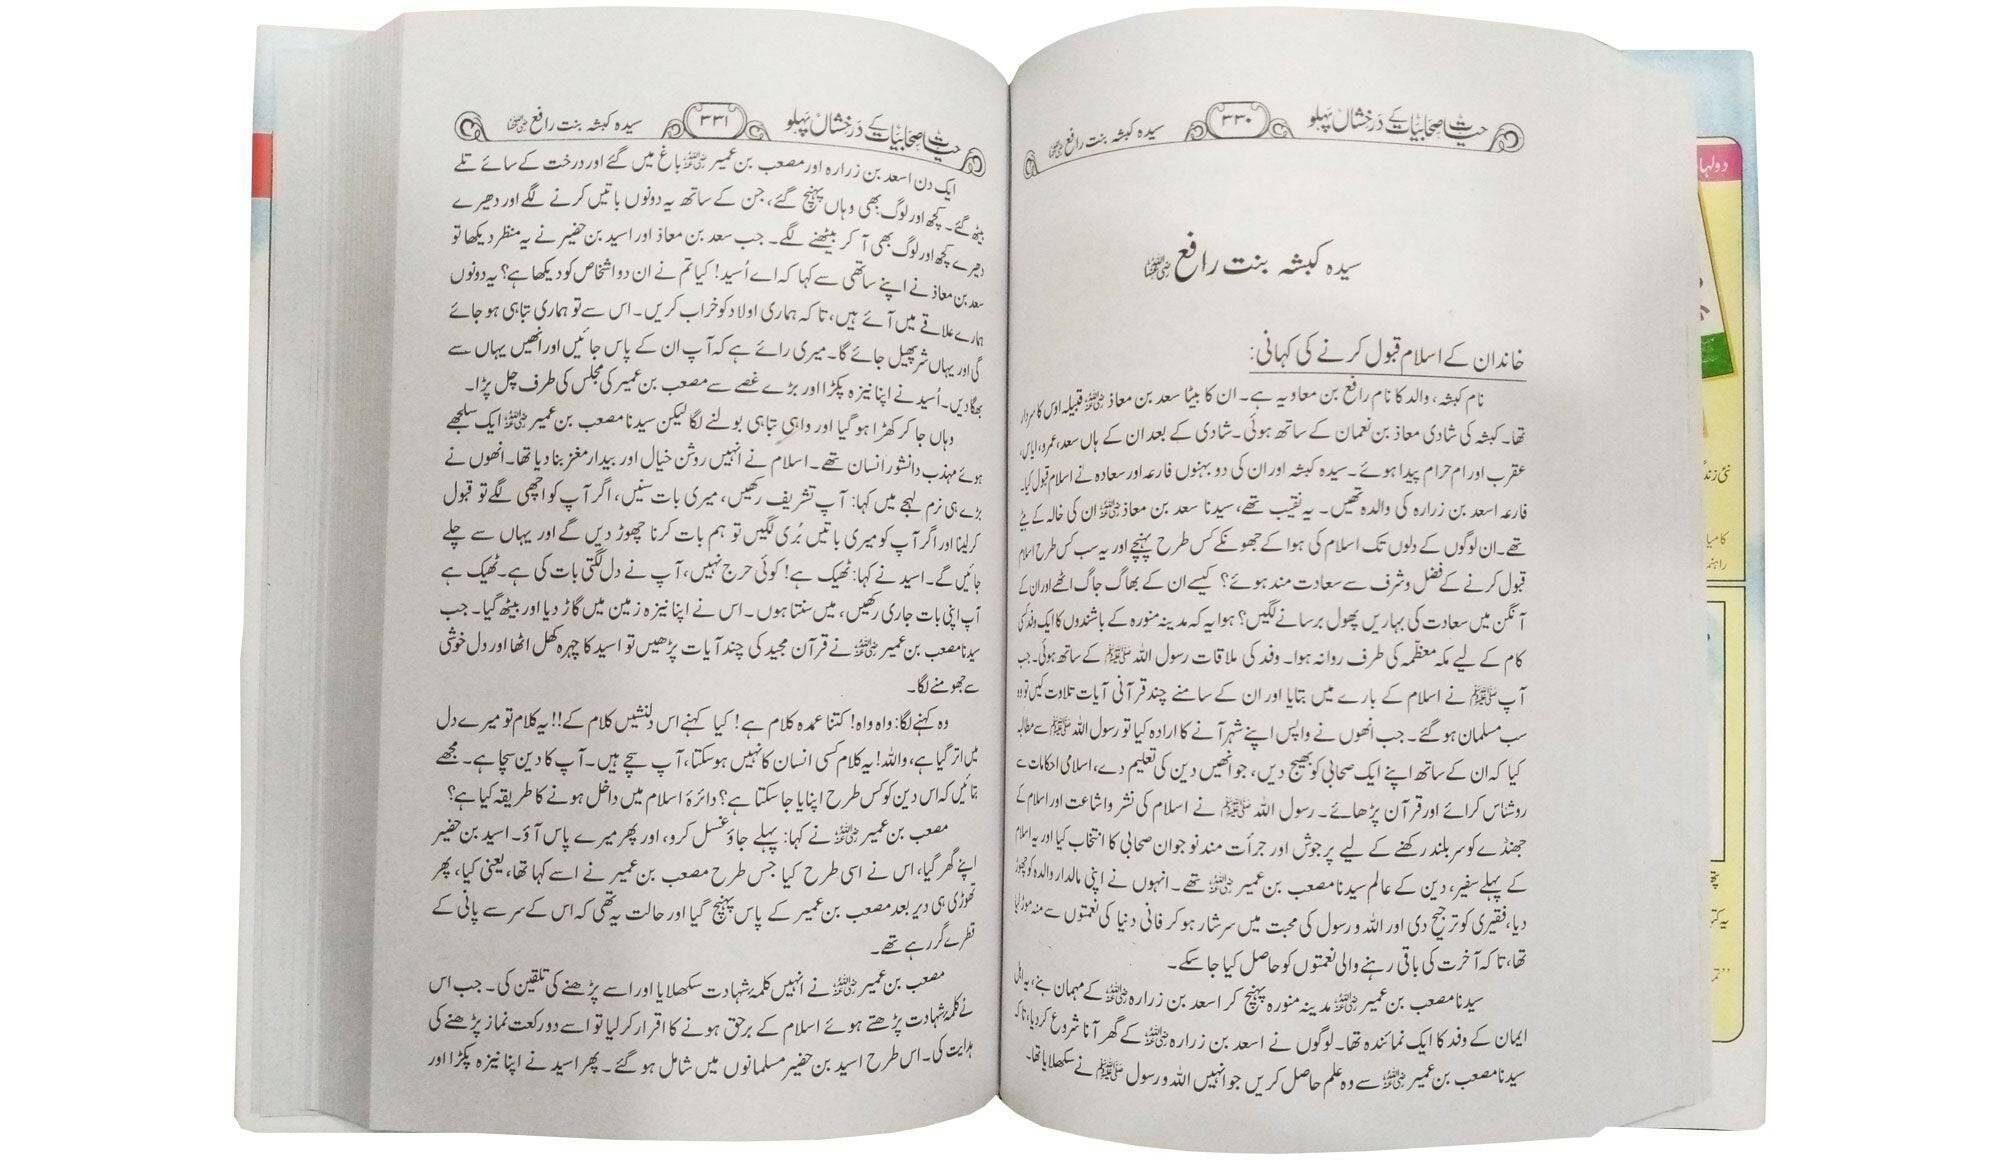 حیات صحابیات کے درخشاں پہلو
۳۳۰
سیدہ کبشہ بنت رافع رضی اللہ عنہا
سیدہ کبشہ بنت رافع رضی اللہ عنہا
خاندان کے اسلام قبول کرنے کی کہانی:
نام کبشہ، والد کا نام رافع بن معاویہ ہے۔ ان کا بیٹا سعد بن معاذ رضی اللہ عنہ قبیلہ اوس کا سردار
تھا۔ کبشہ کی شادی معاذ بن نعمان کے ساتھ ہوئی۔ شادی کے بعد ان کے ہاں سعد، عمرو، ایاس،
عقرب اور ام حرام پیدا ہوئے۔ سیدہ کبشہ اور ان کی دو بہنوں فارعہ اور سعادہ نے اسلام قبول کیا۔
فارعہ اسعد بن زرارہ کی والدہ تھیں۔ یہ نقیب تھے، سیدنا سعد بن معاذ رضی اللہ عنہ ان کی خالہ کے بیٹے
تھے۔ ان لوگوں کے دلوں تک اسلام کی ہوا کے جھونکے کس طرح پہنچے اور یہ سب کس طرح اسلام
قبول کرنے کے فضل و شرف سے سعادت مند ہوئے؟ کیسے ان کے بھاگ جاگ اٹھے اور ان کے
آنگن میں سعادت کی بہاریں پھول برسانے لگیں؟ ہوا یہ کہ مدینہ منورہ کے باشندوں کا ایک وفد کسی
کام کے لیے مکہ معظمہ کی طرف روانہ ہوا۔ وفد کی ملاقات رسول اللہ ﷺ کے ساتھ ہوئی۔ جب
آپ ﷺ نے اسلام کے بارے میں بتایا اور ان کے سامنے چند قرآنی آیات تلاوت کیں تو وہ
سب مسلمان ہو گئے۔ جب انھوں نے واپس اپنے شہر آنے کا ارادہ کیا تو رسول اللہ ﷺ سے مطالبہ
کیا کہ ان کے ساتھ اپنے ایک صحابی کو بھیج دیں، جو انھیں دین کی تعلیم دے، اسلامی احکامات سے
روشناس کرائے اور قرآن پڑھائے۔ رسول اللہ ﷺ نے اسلام کی نشر و اشاعت اور اسلام کے
جھنڈے کو سربلند رکھنے کے لیے پرجوش اور جرأت مند نوجوان صحابی کا انتخاب کیا اور یہ اسلام
کے پہلے سفیر، دین کے عالم سیدنا مصعب بن عمیر رضی اللہ عنہ تھے۔ انہوں نے اپنی مالدار والدہ کو چھوڑ
دیا، فقیری کو ترجیح دی اور اللہ و رسول کی محبت میں سرشار ہو کر فانی دنیا کی نعمتوں سے منہ موڑ لیا
تھا، تاکہ آخرت کی باقی رہنے والی نعمتوں کو حاصل کیا جا سکے۔
سیدنا مصعب بن عمیر رضی اللہ عنہ مدینہ منورہ پہنچ کر اسعد بن زرارہ رضی اللہ عنہ کے مہمان بنے، یہ اہل
ایمان کے وفد کا ایک نمائندہ تھا۔ لوگوں نے اسعد بن زرارہ رضی اللہ عنہ کے گھر آنا شروع کر دیا، تاکہ
سیدنا مصعب بن عمیر رضی اللہ عنہ سے وہ علم حاصل کریں جو انہیں اللہ و رسول ﷺ نے سکھلایا تھا۔
حیات صحابیات کے درخشاں پہلو
۳۳۱
سیدہ کبشہ بنت رافع رضی اللہ عنہا
ایک دن اسعد بن زرارہ اور مصعب بن عمیر رضی اللہ عنہ باغ میں گئے اور درخت کے سائے تلے
بیٹھ گئے۔ کچھ اور لوگ بھی وہاں پہنچ گئے، جن کے ساتھ یہ دونوں باتیں کرنے لگے اور دھیرے
دھیرے کچھ اور لوگ بھی آ کر بیٹھنے لگے۔ جب سعد بن معاذ اور اسید بن حضیر نے یہ منظر دیکھا تو
سعد بن معاذ نے اپنے ساتھی سے کہا کہ اے اُسید! کیا تم نے ان دو اشخاص کو دیکھا ہے؟ یہ دونوں
ہمارے علاقے میں آئے ہیں، تاکہ ہماری اولاد کو خراب کریں۔ اس سے تو ہماری تباہی ہو جائے
گی اور یہاں شر پھیل جائے گا۔ میری رائے ہے کہ آپ ان کے پاس جائیں اور انھیں یہاں سے
بھگا دیں۔ اُسید نے اپنا نیزہ پکڑا اور بڑے غصے سے مصعب بن عمیر کی مجلس کی طرف چل پڑا۔
وہاں جا کر کھڑا ہو گیا اور واہی تباہی بولنے لگا لیکن سیدنا مصعب بن عمیر رضی اللہ عنہ ایک سلجھے
ہوئے مہذب دانشور انسان تھے۔ اسلام نے انہیں روشن خیال اور بیدار مغز بنا دیا تھا۔ انھوں نے
بڑے ہی نرم لہجے میں کہا: آپ تشریف رکھیں، میری بات سنیں، اگر آپ کو اچھی لگے تو قبول
کر لینا اور اگر آپ کو میری باتیں بُری لگیں تو ہم بات کرنا چھوڑ دیں گے اور یہاں سے چلے
جائیں گے۔ اسید نے کہا: ٹھیک ہے! کوئی حرج نہیں، آپ نے دل لگتی بات کی ہے۔ ٹھیک ہے
آپ اپنی بات جاری رکھیں، میں سنتا ہوں۔ اس نے اپنا نیزہ زمین میں گاڑ دیا اور بیٹھ گیا۔ جب
سیدنا مصعب بن عمیر رضی اللہ عنہ نے قرآن مجید کی چند آیات پڑھیں تو اسید کا چہرہ کھل اٹھا اور دل خوشی
سے جھومنے لگا۔
وہ کہنے لگا: واہ واہ! کتنا عمدہ کلام ہے! کیا کہنے اس دلنشیں کلام کے!! یہ کلام تو میرے دل
میں اتر گیا ہے، واللہ! یہ کلام کسی انسان کا نہیں ہو سکتا، آپ سچے ہیں۔ آپ کا دین سچا ہے۔ مجھے
بتائیں کہ اس دین کو کس طرح اپنایا جا سکتا ہے؟ دائرۂ اسلام میں داخل ہونے کا طریقہ کیا ہے؟
مصعب بن عمیر رضی اللہ عنہ نے کہا: پہلے جاؤ غسل کرو، اور پھر میرے پاس آؤ۔ اسید بن حضیر
اپنے گھر گیا، اس نے اسی طرح کیا جس طرح مصعب بن عمیر نے اسے کہا تھا، یعنی کیا، پھر
تھوڑی ہی دیر بعد مصعب بن عمیر کے پاس پہنچ گیا اور حالت یہ تھی کہ اس کے سر سے پانی کے
قطرے گر رہے تھے۔
مصعب بن عمیر رضی اللہ عنہ نے انہیں کلمۂ شہادت سکھلایا اور اسے پڑھنے کی تلقین کی۔ جب اس
نے کلمۂ شہادت پڑھتے ہوئے اسلام کے برحق ہونے کا اقرار کر لیا تو اسے دو رکعت نماز پڑھنے کی
ہدایت کی۔ اس طرح اسید بن حضیر مسلمانوں میں شامل ہو گئے۔ پھر اسید نے اپنا نیزہ پکڑا اور